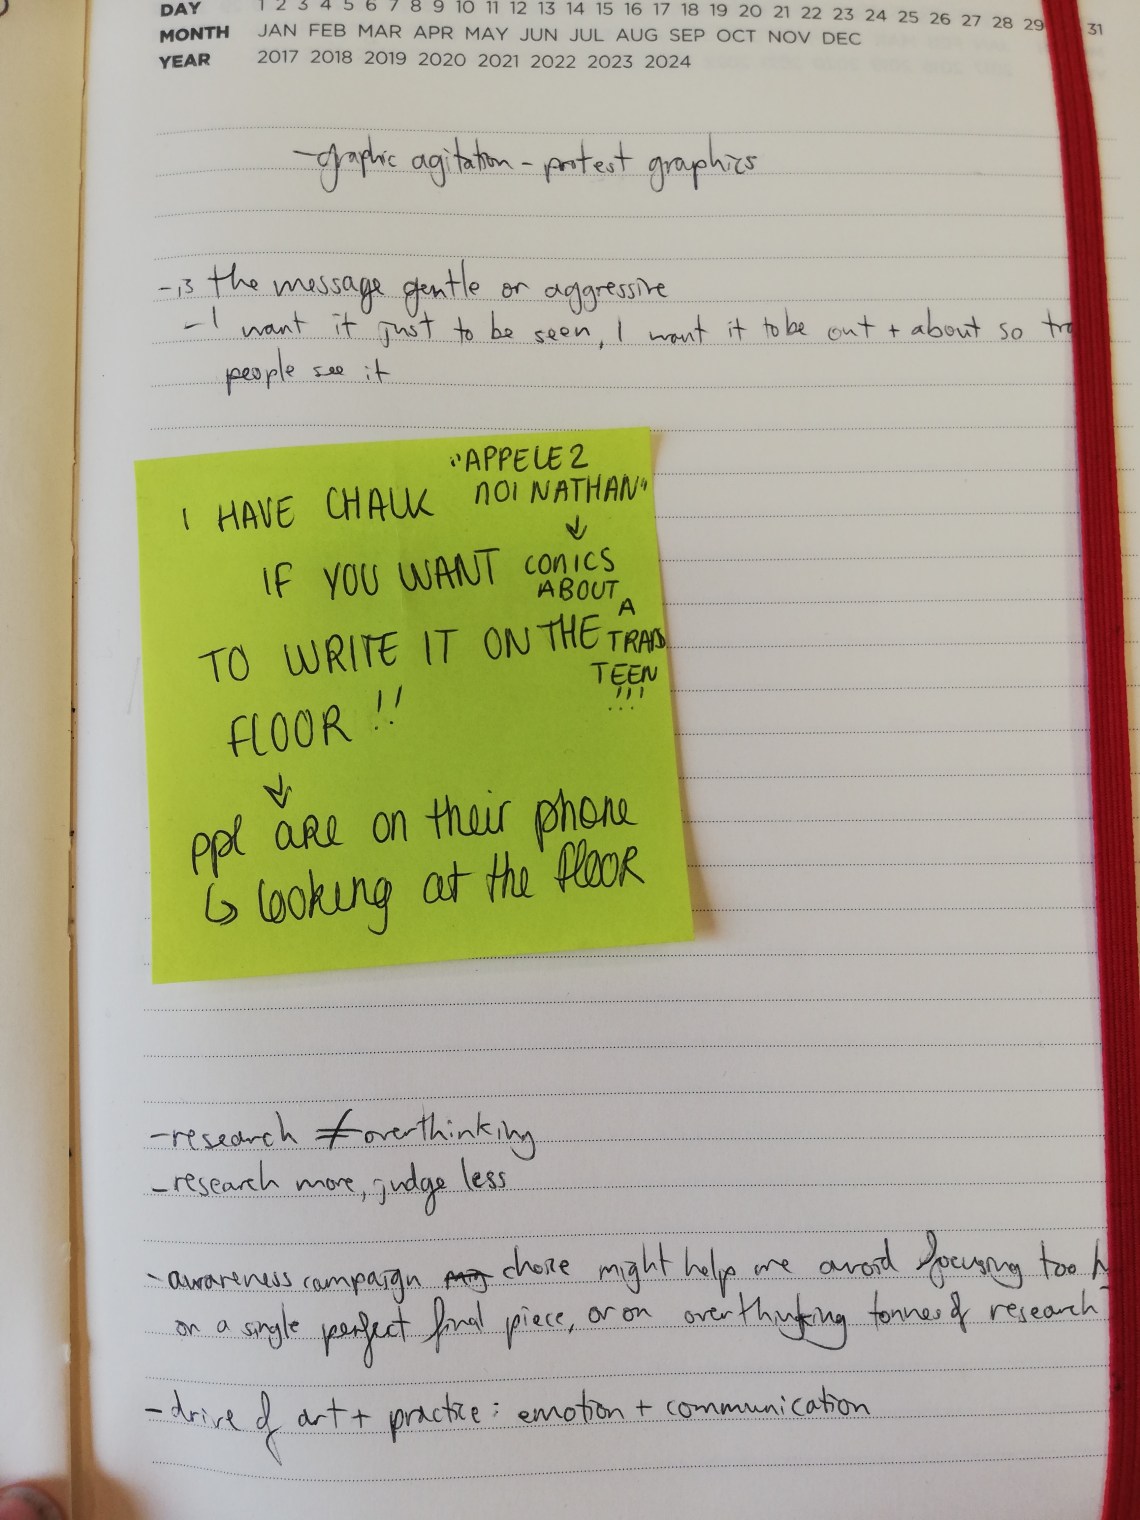 DAY 1 2 3 4 5 6 7 8 9 10 11 12 13 14 15 16 17 18 19 20 21 22 23 24 25 26 27 28 29 31
MONTH JAN FEB MAR APR MAY JUN JUL AUG SEP OCT NOV DEC
YEAR 2017 2018 2019 2020 2021 2022 2023 2024
- graphic agitation - protest graphics
- is the message gentle or aggressive
- I want it just to be seen, I want it to be out + about so tra
people see it
"APPELEZ
MOI NATHAN"
↓
COMICS
ABOUT
A
TRANS
TEEN
!!!
I HAVE CHALK
IF YOU WANT
TO WRITE IT ON THE
FLOOR !!
↓
ppl ARE on their phone
↳ looking at the flooR
- research ≠ overthinking
- research more, judge less
- awareness campaign choice might help me avoid focusing too h
on a single perfect final piece, or on overthinking tonnes of research
- drive of art + practice: emotion + communication